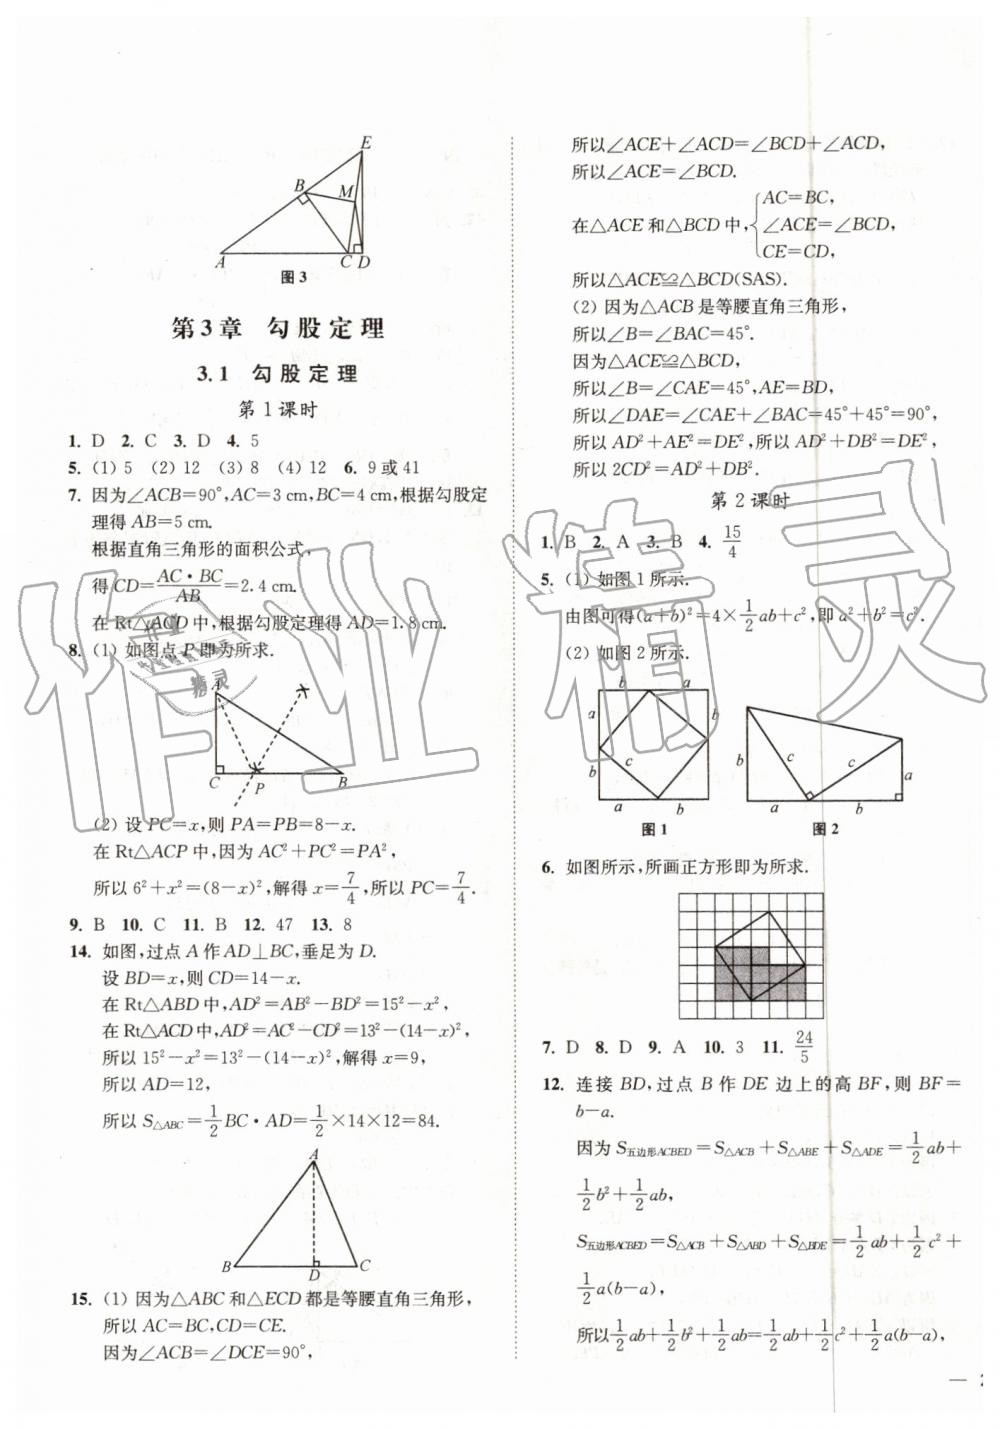 E
B
M
A
C D
图3
第3章 勾股定理
3.1 勾股定理
第1课时
1. D 2. C 3. D 4. 5
5. (1) 5 (2) 12 (3) 8 (4) 12 6. 9或41
7. 因为∠ACB=90°,AC=3 cm,BC=4 cm,根据勾股定
理得 AB=5 cm.
根据直角三角形的面积公式,
得 CD=AC·BC/AB=2.4 cm.
在 Rt△ACD 中,根据勾股定理得 AD=1.8 cm.
8. (1) 如图点 P 即为所求.
A
C
P
B
(2) 设 PC=x,则 PA=PB=8-x.
在 Rt△ACP 中,因为 AC²+PC²=PA²,
所以 6²+x²=(8-x)²,解得 x=7/4,所以 PC=7/4.
9. B 10. C 11. B 12. 47 13. 8
14. 如图,过点 A 作 AD⊥BC,垂足为 D.
设 BD=x,则 CD=14-x.
在 Rt△ABD 中,AD²=AB²-BD²=15²-x²,
在 Rt△ACD 中,AD²=AC²-CD²=13²-(14-x)²,
所以 15²-x²=13²-(14-x)²,解得 x=9,
所以 AD=12,
所以 S△ABC=1/2 BC·AD=1/2×14×12=84.
A
B
D
C
15. (1) 因为△ABC 和△ECD 都是等腰直角三角形,
所以 AC=BC,CD=CE.
因为∠ACB=∠DCE=90°,
所以∠ACE+∠ACD=∠BCD+∠ACD,
所以∠ACE=∠BCD.
在△ACE 和△BCD 中,{AC=BC,
∠ACE=∠BCD,
CE=CD,
所以△ACE≌△BCD(SAS).
(2) 因为△ACB 是等腰直角三角形,
所以∠B=∠BAC=45°.
因为△ACE≌△BCD,
所以∠B=∠CAE=45°,AE=BD,
所以∠DAE=∠CAE+∠BAC=45°+45°=90°,
所以 AD²+AE²=DE²,所以 AD²+DB²=DE²,
所以 2CD²=AD²+DB².
第2课时
1. B 2. A 3. B 4. 15/4
5. (1) 如图1所示.
由图可得(a+b)²=4×1/2 ab+c²,即 a²+b²=c².
(2) 如图2所示.
b a
a b
b c
a b
图1
b c c a
a b
图2
6. 如图所示,所画正方形即为所求.
7. D 8. D 9. A 10. 3 11. 24/5
12. 连接 BD,过点 B 作 DE 边上的高 BF,则 BF=
b-a.
因为 S五边形ACBED=S△ACB+S△ABE+S△ADE=1/2 ab+
1/2 b²+1/2 ab,
S五边形ACBED=S△ACB+S△ABD+S△BDE=1/2 ab+1/2 c²+
1/2 a(b-a),
所以 1/2 ab+1/2 b²+1/2 ab=1/2 ab+1/2 c²+1/2 a(b-a),
— 2
作业精灵
作业
精灵